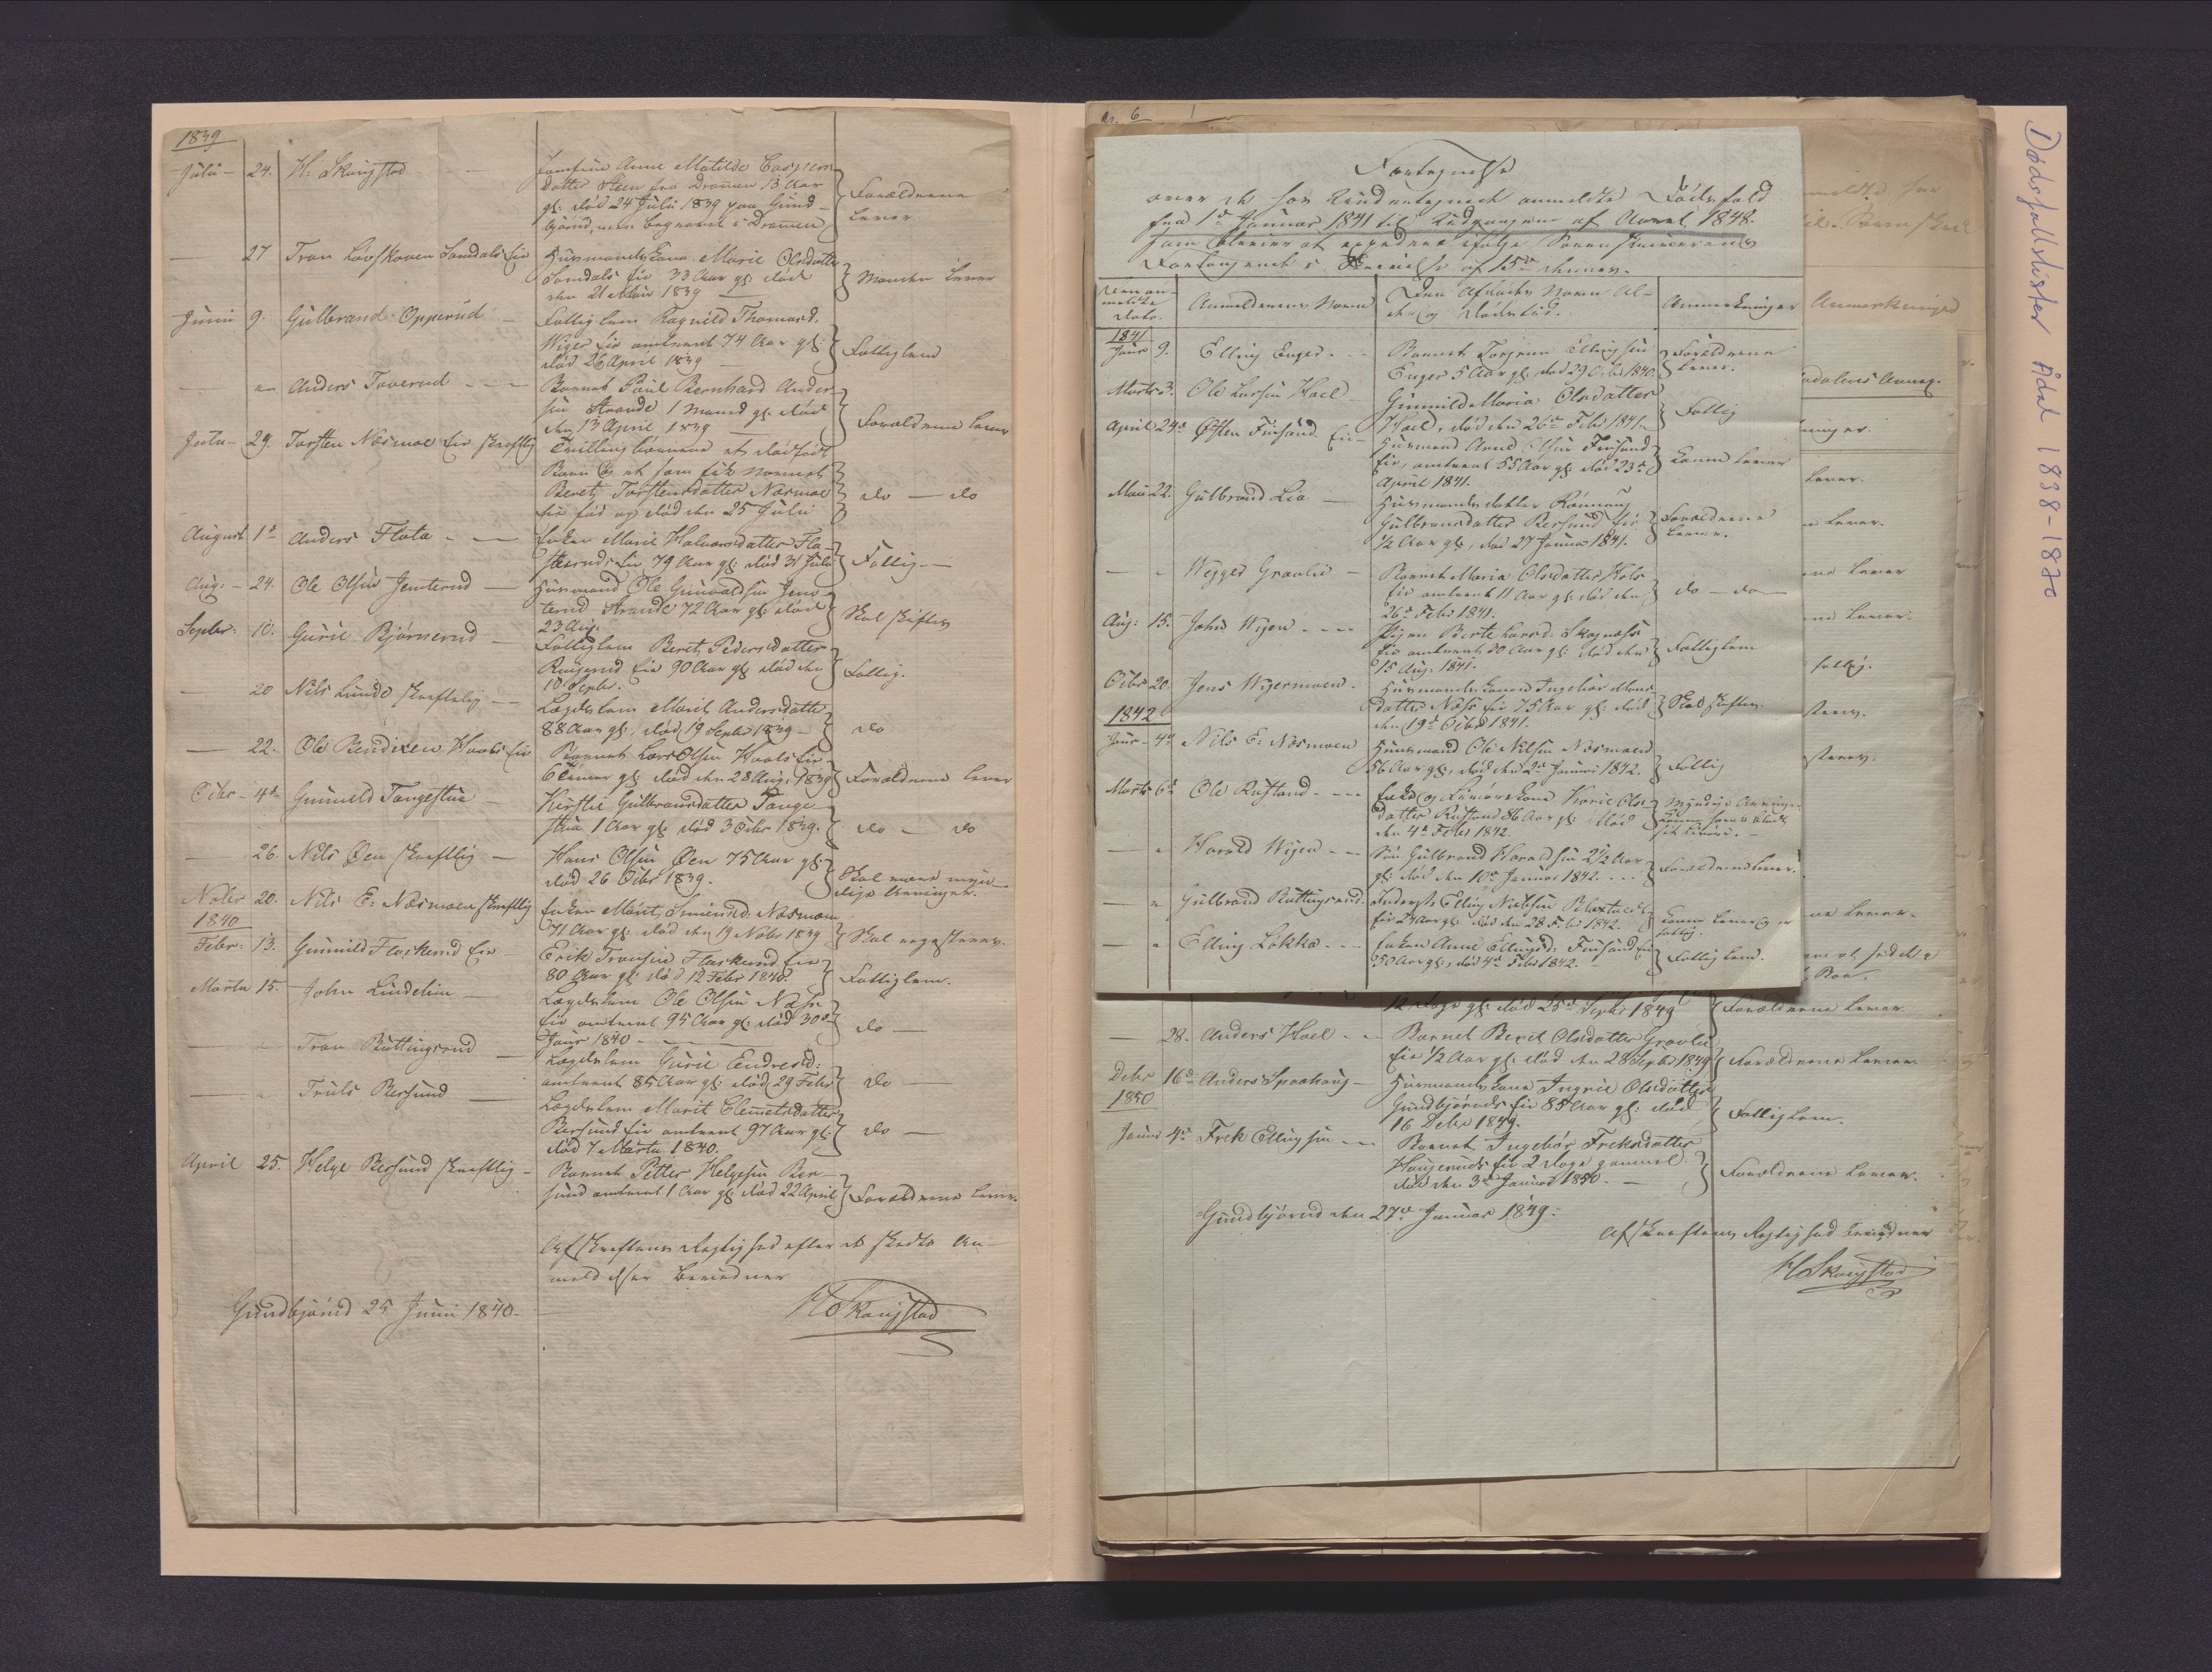 1839
Juli - 24. H: Skougstad Jomfrue Anne Matilde Caspers
datter Steen fra Dramen 13 Aar
gl: død 24 Juli 1839 paa Gund-
bjørud, men begravet i Dramen
Forældrene
lever
— 27 Tron Løvskoven Somdals Eie Huusmandskone Marie Olsdatter
Somdals Eie 33 Aar gl: død
den 21 Mai 1839
Manden lever
Juni 9. Gulbrand Opperud Fattiglem Ragnild Thomasd.
Wiger Eie omtrent 74 Aar gl:
død 26 April 1839
Fattiglem
— " Anders Toverud Barnet Paul Bernhard Ander-
sen Strande 1 Maaned gl: død
den 13 April 1839
Forældrene lever
Julu - 29. Torsten Næsmoe Eie skriftlig Tvillingbørnene et dødfødt
Barn og et som fik Navnet
Beret Torstensdatter Næsmoe
Eie fød og død den 25 Juli
do — do
August 1de Anders Flota Enken Marie Halvorsdatter Fla-
skeruds Eie 79 Aar gl: død 31 Juli
Fattig
Aug: - 24. Ole Olsen Jemterud Huusmand Ole Gunvaldsen Jem-
terud Strande 72 Aar gl: død
23 Aug:
Skal skiftes
Septbr: 10. Gurie Bjørnerud Fattiglem Beret Pedersdatter
Ringerud Eie 90 Aar gl: død den
10 Septbr.
Fattig.
— 20 Nils Lunde skriftelig Lægdslem Marit Andersdatter
88 Aar gl:, død 19 Septbr 1839
do
— 22. Ole Bendixen Hvals Eie Barnet Lars Olsen Hvals Eie
6 Timer gl: død den 28 Aug: 1839
Forældrene lever
Octbr - 4de Gunnild Tangestue Kirstie Gulbransdatter Tange-
stue 1 Aar gl: død 3 Octbr 1839.
do — do
— 26. Nils Øen skriftlig Hans Olsen Øen 75 Aar gl:
død 26 Octbr 1839.
Skal være myn-
dige Arvinger.
Novbr 20. Nils E: Næsmoen skriftlig Enken Marit Simensd: Næsmoen
71 Aar gl: død den 19 Novbr 1839
1840
Febr: 13. Gunnild Flaskerud Eie Erik Tronsen Flaskerud Eie
80 Aar gl: død 12 Febr 1840
Fattiglem.
Marts 15. John Lindelien Lægdslem Ole Olsen Næss
Eie omtrent 95 Aar gl: død 30de
Janr 1840
do —
— " Tron Buttingsrud Lægdslem Gurie Endresd:
omtrent 85 Aar gl: død 29 Febr
do —
— " Truls Bersund Lægdslem Marit Clemetsdatter
Bersund Eie omtrent 97 Aar gl:
død 7 Marts 1840.
do —
April 25. Helge Bersund skriftlig Barnet Petter Helgesen Ber-
sund omtrent 1 Aar gl: død 22 April
Forældrene lever.
Afskriftens Rigtighed efter de skedte An-
meldelser bevidner
Gundbjørud 25 Juni 1840.
HSkougstad
N. 6
Fortegnelse
over de hos Undertegnede anmeldte Dødsfald
fra 1de Januar 1841 til Udgangen af Aaret 1848.
som bleven at expedere ifølge Sorenskriverens
Forlangende i Skrivelse af 15de dennes.
Den an-
meldte
Dato. Anmelderens Navn Den Afdødes Navn Al-
der og Dødstid. Anmerkninger
1841
Janr 9. Elling Enger Barnet Torgen Ellingsen
Enger 5 Aar gl: død 29 Octbr 1840
Forældrene
lever.
Marts 3. Ole Larsen Hoel Gunnild Maria Olsdatter
Hoel, død den 26de Febr 1841.
Fattig
April 24de Østen Finsand Eie Huusmand Arne Olsen Finsand
Eie, omtrent 55 Aar gl: død 23de
April 1841.
Konen lever
Mai 22. Gulbrand Lia Huusmandsdatter Rønnaug
Gulbransdatter Bersund Eie
1/2 Aar gl:, død 27 Januar 1841.
Forældrene
lever.
— " Wegger Gravlie Barnet Maria Olsdatter Hols
Eie omtrent 11 Aar gl: død den
26de Febr 1841.
do — do
Aug: 15. John Wigen Pigen Berte Larsd: Skagnæss
Eie omtrent 20 Aar gl: død den
15 Aug: 1841.
Fattiglem
Octbr 20. Jens Wigermoen Huusmandskonen Ingebor Mons-
datter Næss Eie 75 Aar gl: død
den 19de Octbr 1841.
Skal skiftes.
1842
Janr - 4de Nils E: Næsmoen Huusmand Ole Nilsen Næsmoen
56 Aar gl:, død den 2de Januar 1842.
Fattig
Marts 6te Ole Rustand Enke og Livørekone Karie Ols-
datter Rustand 86 Aar gl: død
den 4de Febr 1842.
Myndige Arvinger
— " Harald Wigen Søn Gulbrand Haraldsen 2 1/2 Aar
gl: død den 10de Januar 1842.
Forældrene lever.
— " Gulbrand Buttingsrud Inderste Elling Nielsen
Eie 24 Aar gl: død den 28 Febr 1842.
Konen lever og er
fattig.
— " Elling Løkka Enken Anne Ellingsd: Finsand Eie
50 Aar gl:, død 4de Febr 1842.
Fattiglem.
12 Dage gl: død 25de Septbr 1849
Forældrene lever
— 28. Anders Hoel Barnet Beret Olsdatter Gravlie
Eie 1/2 Aar gl: død den 28 Septbr 1849
Forældrene lever.
Debr 16de Anders Spaahaug Huusmandskone Ingrie Olsdatter
Gundbjøruds Eie 85 Aar gl: død
16 Debr 1849.
Fattiglem.
1850
Januar 4de Frek Ellingsen Barnet Ingebor Freksdatter
Haugeruds Eie 2 Dage gammel
død den 3de Januar 1850.
Forældrene lever.
Gundbjørud den 27de Januar 1849.
Afskriftens Rigtighed bevidner
HSkougstad
Anmerkninger
lever.
lever.
lever
lever.
fattig.
lever.
Dødsfallslister Ådal 1838-1870